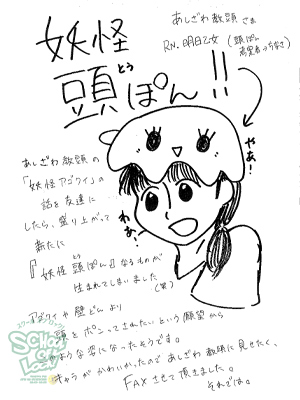 あしざわ教頭さま
RN.明日乙女(頭ぽん
妖怪
頭ぽん!!
とう
やぁ!
わぁ!
あしざわ教頭の
「妖怪アゴクイ」の
話を友達に
したら、盛り上がって
新たに
『妖怪頭ぽん』なるものが
とう
生まれてしまいました(笑)
アゴクイや壁どんより
頭をポンってされたいという願望から
このような姿になったそうです。
キャラがかわいかったのであしざわ教頭に見せたく、
FAXさせて頂きました。
それでは。
SCHOOL
OF
LOCK!